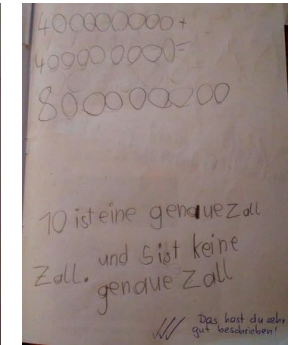 400000000+
400000000=
800000000
10 ist eine genaue Zall
Zall. und 5 ist keine
genaue Zall
Das hast du sehr
gut beschrieben!